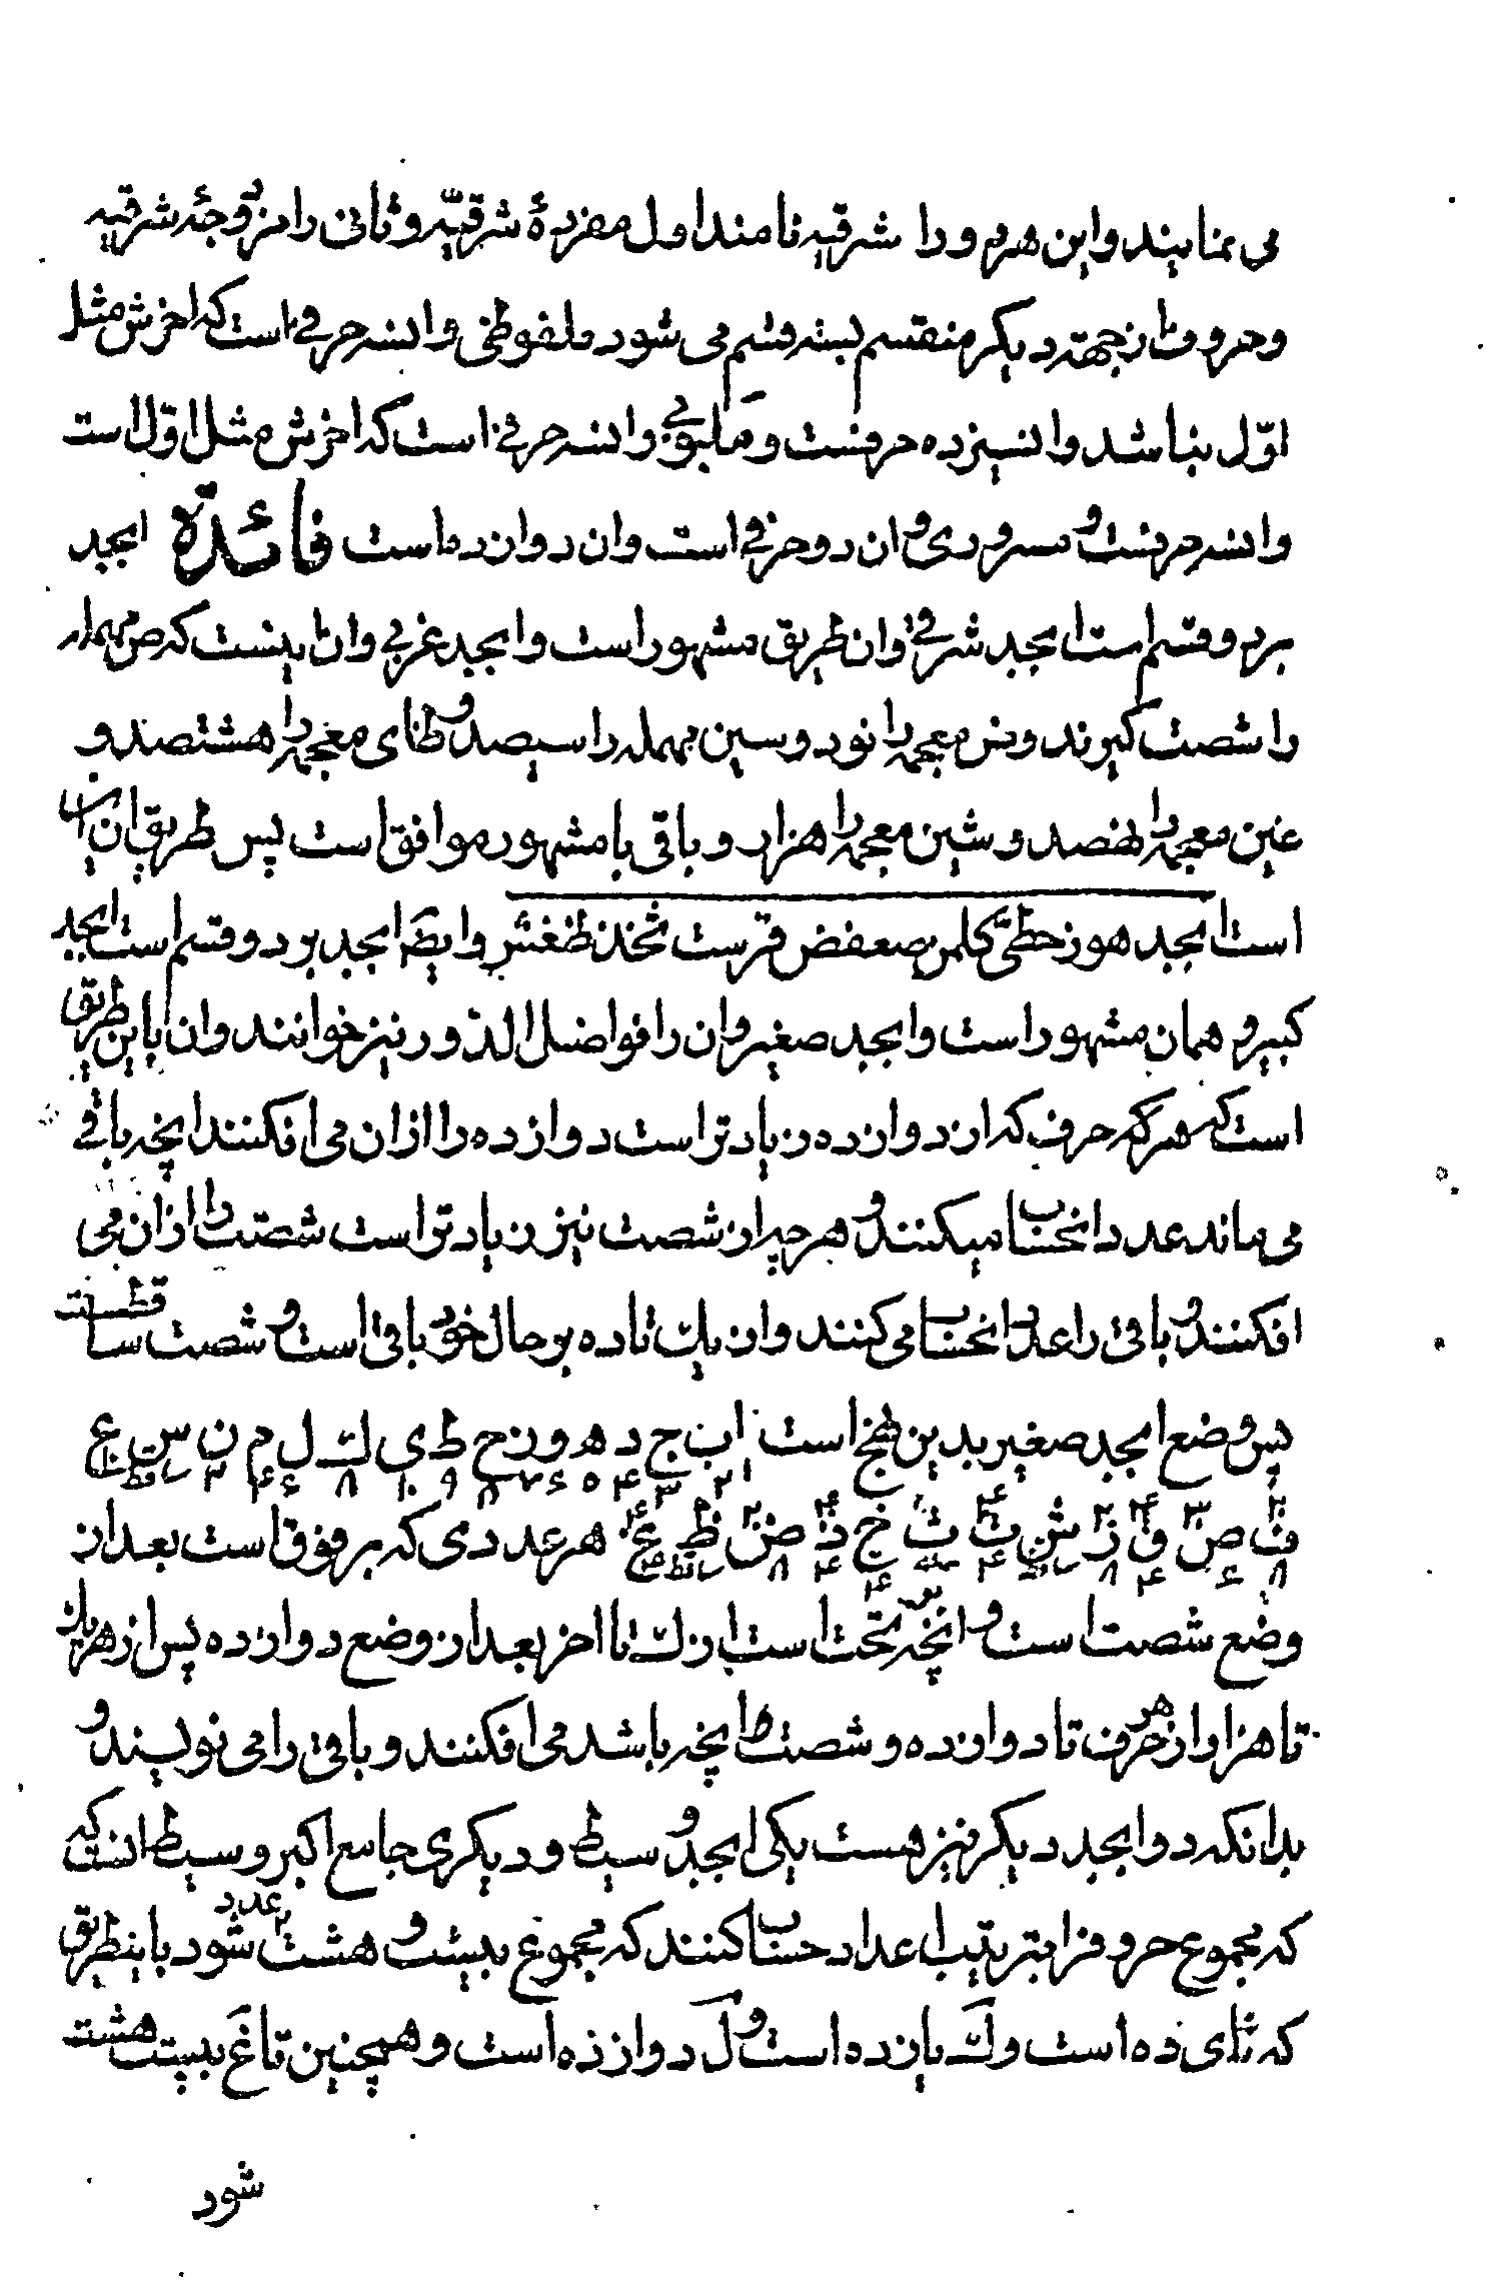 می نمایند و این هردو را شرقیه نامند اول مفردهٔ شرقیّه و ثانی را مزدوجهٔ شرقیه
و حروف از جهة دیکر منقسم بسه قسم می شود ملفوظی و ان سه حرفی است که اخرش مثل
اوّل نباشد و ان سیزده حرفست و مکتوبی و ان سه حرفی است که اخرش مثل اوّل است
و ان سه حرفست و مسروری و ان دو حرفی است و ان دوازده است فائدة ابجد
بردو قسم است ابجد شرقی و ان طریق مشهور است و ابجد غربی و ان اینست که ص مهمله
را شصت کیرند و ض معجمه را نود و سین مهمله را سیصد و ظای معجمه را هشتصد و
غین معجمه را نهصد و شین معجمه را هزار و باقی با مشهور موافق است پس طریق ان این
است ابجد هوز حطی کلمن صعفض قرست ثخذ ظغش و ایضا ابجد بر دو قسم است ابجد
کبیر و همان مشهور است و ابجد صغیر و ان را فواضل الدور نیز خوانند و ان باین طریق
است که هر حرف که از دوازده زیادتر است دوازده را ازان می افکنند انچه باقی
می ماند عدد ان حساب میکنند و هر چه از شصت نیز زیادتر است شصت را ازان می
افکنند و باقی را عدد ان حساب می کنند و از یک تا ده بر حال خود باقی است و شصت ساقطست
پس وضع ابجد صغیر بدین نهج است ا ب ج د ه و ز ح ط ی ک ل م ن س ع
۱ ۲ ۳ ۴ ۵ ۶ ۷ ۸ ۹ ۱۰ ۸ ۶ ۴ ۲ ساقط ۱۰
ف ص ق ر ش ت ث خ ذ ض ظ غ هر عددی که بر فوق است بعد از
وضع شصت است و انچه بر تحت است از ک تا اخر بعد از وضع دوازده پس از هر یک
تا هزار از هر حرف تا دوازده و شصت تا انچه باشد می افکنند و باقی را می نویسند و
بدانکه دو ابجد دیکر نیز هست یکی ابجد و سیط و دیکری جامع اکبر وسیط انست که
که مجموع حروف را بترتیب اعداد حساب کنند که مجموع بیست و هشت عدد شود باینطریق
که تا ی ده است و ک یازده است و ل دوازده است و همچنین تا غ بیست هشت
شود